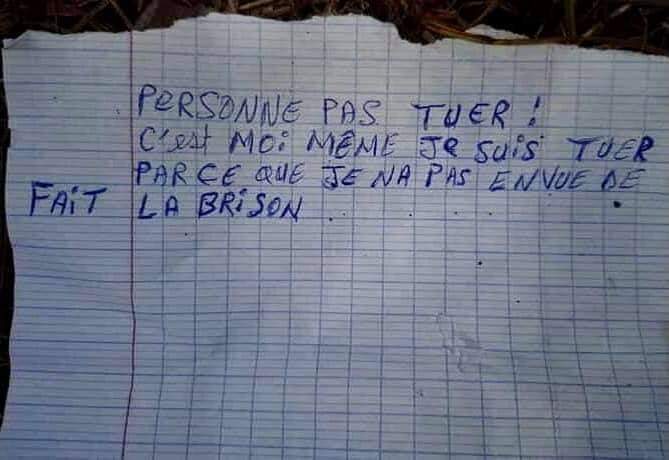 PERSONNE PAS TUER !
C'est MOi MÊME Je SUiS TUER
PARCE QUE JE NA PAS ENVUE DE
FAiT LA BRiSON . . . . .